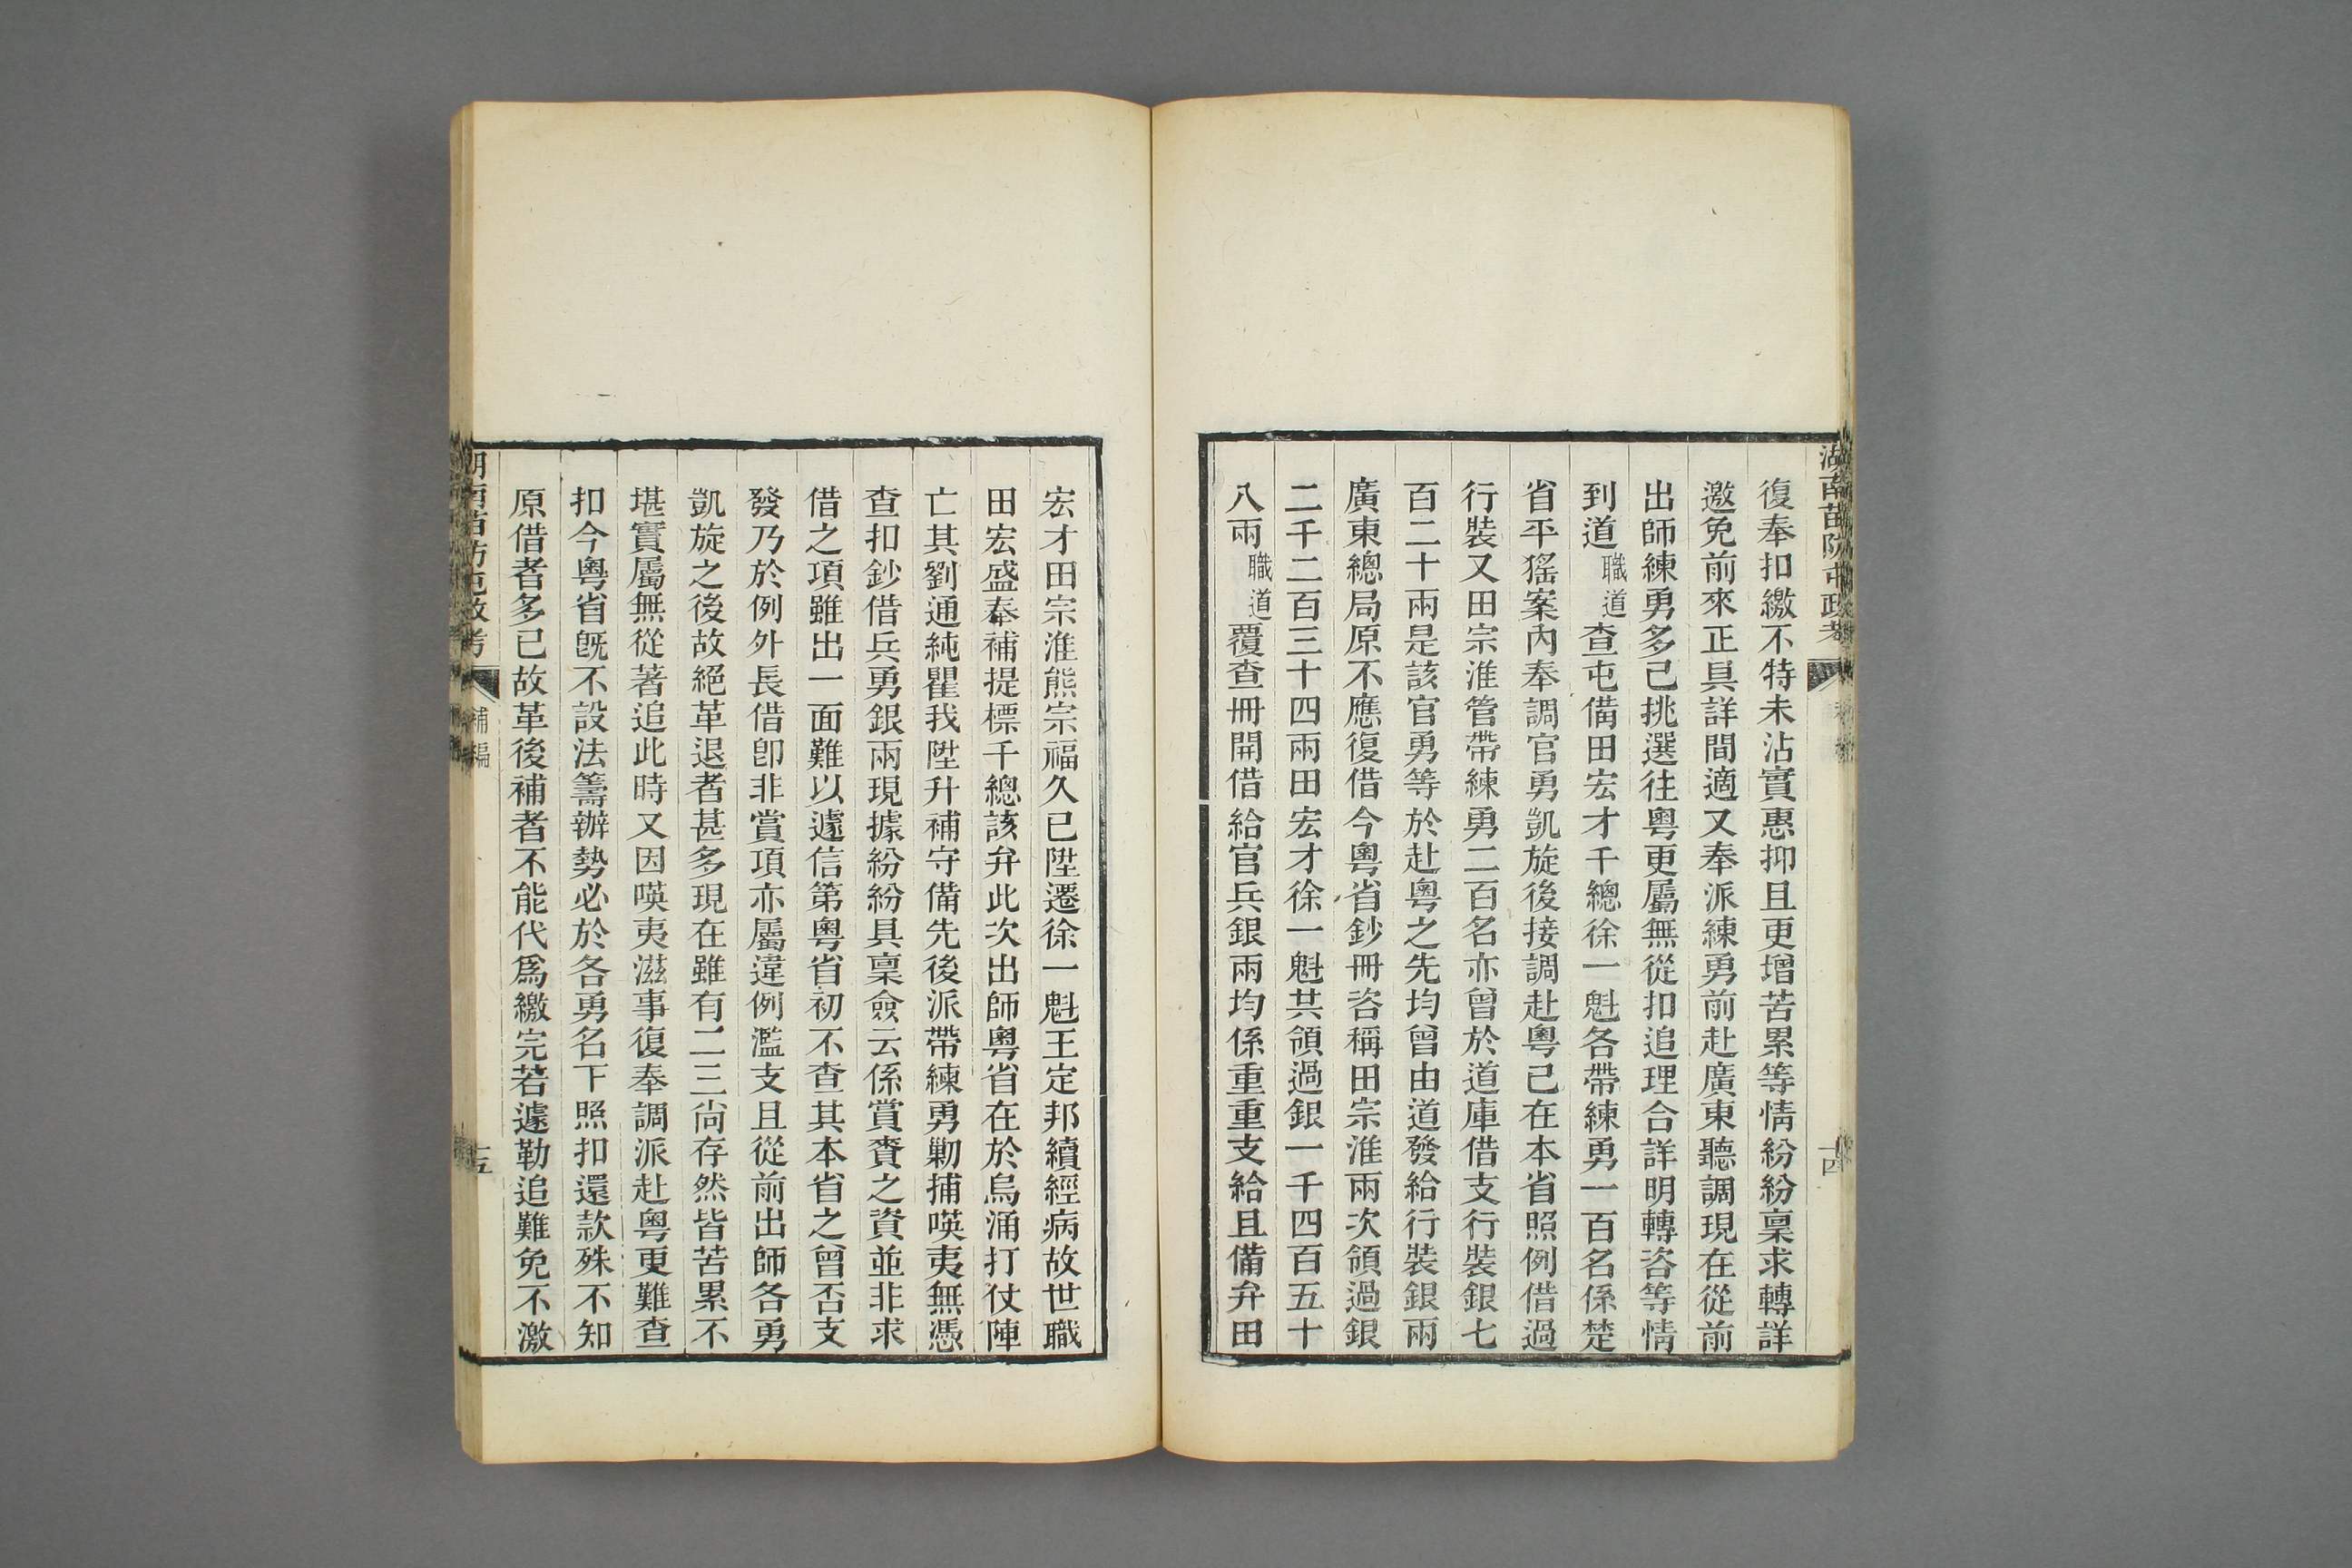 湖南苗防屯政考
一四
復奉扣繳不特未沾實惠抑且更增苦累等情紛紛稟求轉詳
邀免前來正具詳間適又奉派練勇前赴廣東聽調現在從前
出師練勇多已挑選往粵更屬無從扣追理合詳明轉咨等情
到道職道查屯備田宏才千總徐一魁各帶練勇一百名係楚
省平猺案內奉調官勇凱旋後接調赴粵已在本省照例借過
行裝又田宗淮管帶練勇二百名亦曾於道庫借支行裝銀七
百二十兩是該官勇等於赴粵之先均曾由道發給行裝銀兩
廣東總局原不應復借今粵省鈔冊咨稱田宗淮兩次領過銀
二千二百三十四兩田宏才徐一魁共領過銀一千四百五十
八兩職道覆查冊開借給官兵銀兩均係重重支給且備弁田
宏才田宗淮熊宗福久已陞遷徐一魁王定邦續經病故世職
田宏盛奉補提標千總該弁此次出師粵省在於烏涌打仗陣
亡其劉通純瞿我陞升補守備先後派帶練勇勦捕嘆夷無憑
查扣鈔借兵勇銀兩現據紛紛具稟僉云係賞賚之資並非求
借之項雖出一面難以遽信第粵省初不查其本省之曾否支
發乃於例外長借卽非賞項亦屬違例濫支且從前出師各勇
凱旋之後故絕革退者甚多現在雖有一二三尙存然皆苦累不
堪實屬無從著追此時又因嘆夷滋事復奉調派赴粵更難查
扣今粵省旣不設法籌辦勢必於各勇名下照扣還款殊不知
原借者多已故革後補者不能代爲繳完若遽勒追難免不激
湖南苗防屯政考
補編
十五